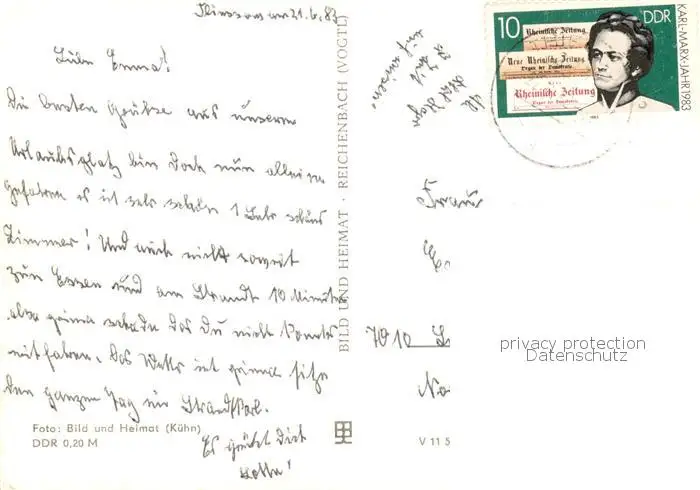 am 21.6.83
Liebe Emma!
Die besten Grüße aus unserem
Urlaubsplatz bin doch nun alleine
gefahren es ist sehr schade 1 sehr schönes
Zimmer! Und auch nicht soweit
zum Essen und am Strandt 10 Minuten
also prima schade das Du nicht konntest
mitfahren. Das Wetter ist prima sitze
den ganzen Tag im Strandkorb.
Es grüßt Dich
BILD UND HEIMAT · REICHENBACH (VOGTL)
Foto: Bild und Heimat (Kühn)
DDR 0,20 M
V 11 5
10 DDR
KARL-MARX-JAHR 1983
Rheinische Zeitung
Neue Rheinische Zeitung
Organ der Demokratie.
Neue
Rheinische Zeitung
Organ der Demokratie.
1983
Frau
7010 L
privacy protection
Datenschutz